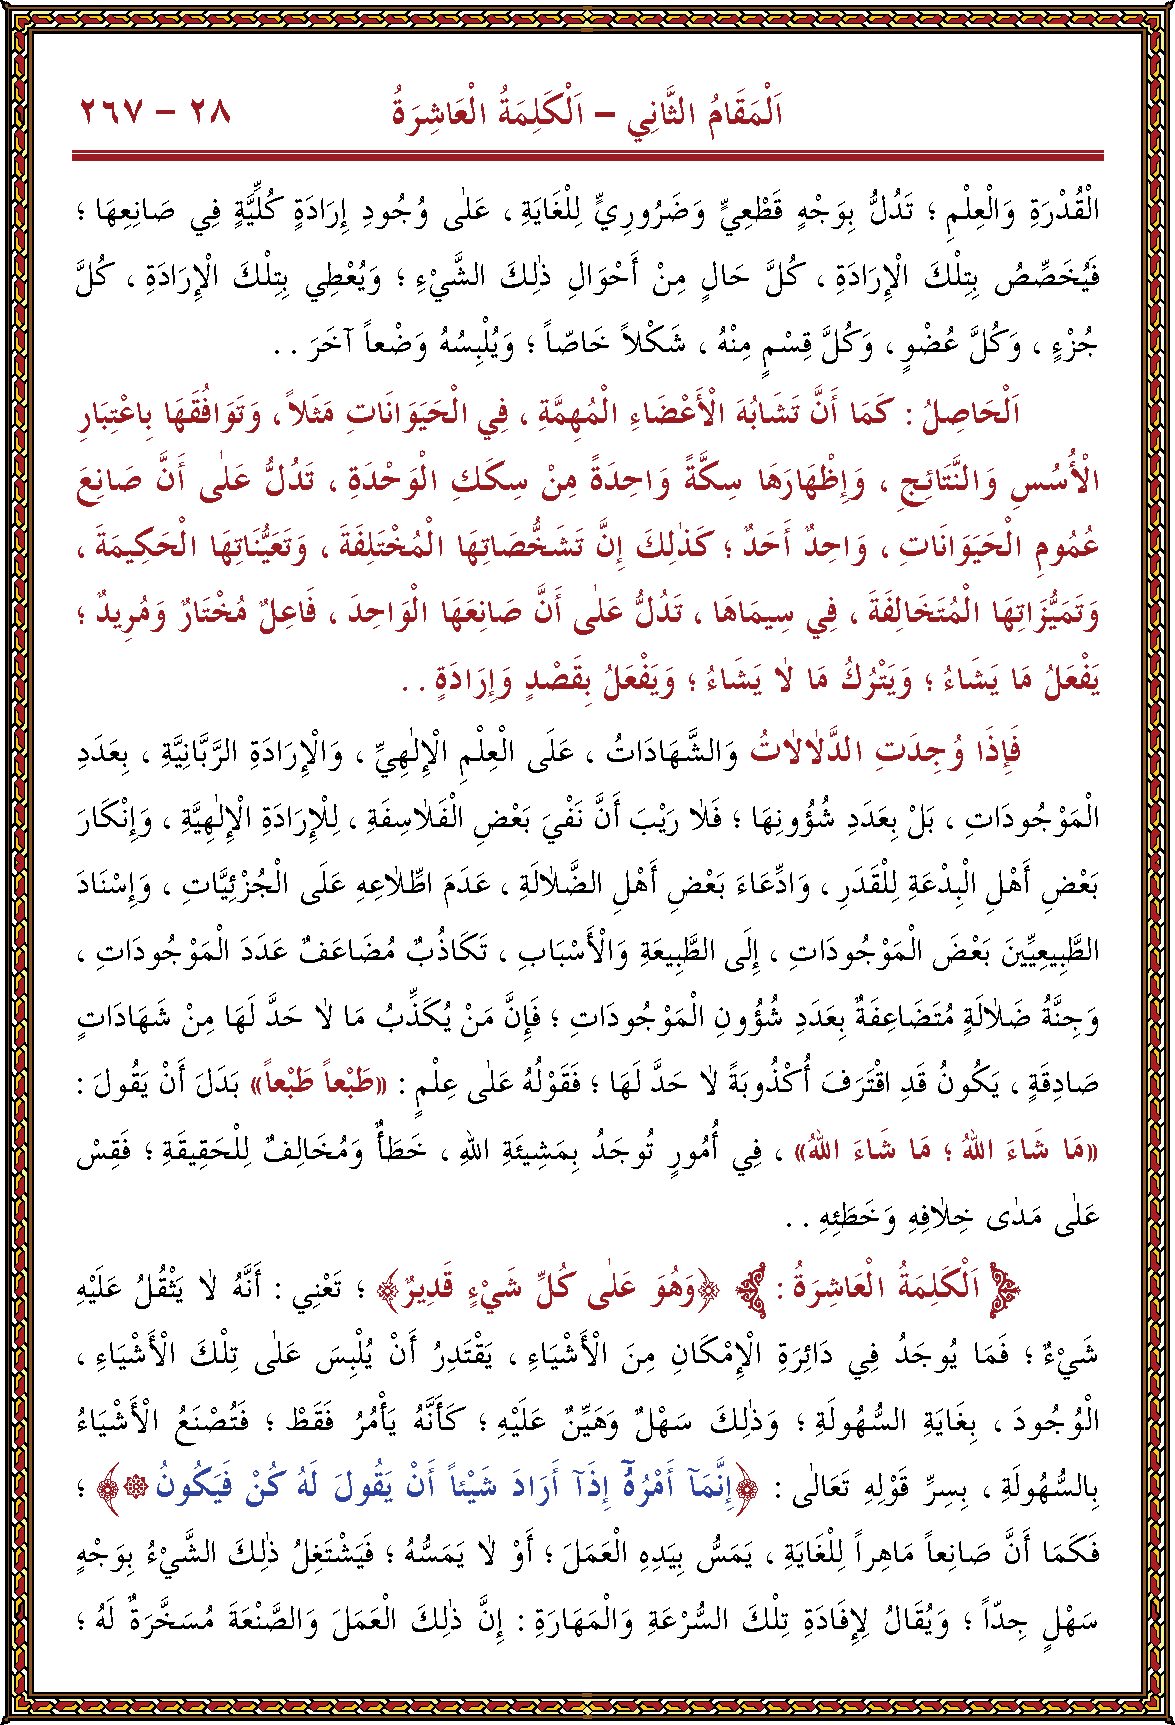 اَلْمَقَامُ الثَّانِي – اَلْكَلِمَةُ الْعَاشِرَةُ ٢٨ – ٢٦٧
الْقُدْرَةِ وَالْعِلْمِ ؛ تَدُلُّ بِوَجْهٍ قَطْعِيٍّ وَضَرُورِيٍّ لِلْغَايَةِ ، عَلٰى وُجُودِ إِرَادَةٍ كُلِّيَّةٍ فِي صَانِعِهَا ؛
فَيُخَصِّصُ بِتِلْكَ الْإِرَادَةِ ، كُلَّ حَالٍ مِنْ أَحْوَالِ ذٰلِكَ الشَّيْءِ ؛ وَيُعْطِي بِتِلْكَ الْإِرَادَةِ ، كُلَّ
جُزْءٍ ، وَكُلَّ عُضْوٍ ، وَكُلَّ قِسْمٍ مِنْهُ ، شَكْلاً خَاصّاً ؛ وَيُلْبِسُهُ وَضْعاً آخَرَ . .
اَلْحَاصِلُ : كَمَا أَنَّ تَشَابُهَ الْأَعْضَاءِ الْمُهِمَّةِ ، فِي الْحَيَوَانَاتِ مَثَلاً ، وَتَوَافُقَهَا بِاعْتِبَارِ
الْأُسُسِ وَالنَّتَائِجِ ، وَإِظْهَارَهَا سِكَّةً وَاحِدَةً مِنْ سِكَكِ الْوَحْدَةِ ، تَدُلُّ عَلٰى أَنَّ صَانِعَ
عُمُومِ الْحَيَوَانَاتِ ، وَاحِدٌ أَحَدٌ ؛ كَذٰلِكَ إِنَّ تَشَخُّصَاتِهَا الْمُخْتَلِفَةَ ، وَتَعَيُّنَاتِهَا الْحَكِيمَةَ ،
وَتَمَيُّزَاتِهَا الْمُتَخَالِفَةَ ، فِي سِيمَاهَا ، تَدُلُّ عَلٰى أَنَّ صَانِعَهَا الْوَاحِدَ ، فَاعِلٌ مُخْتَارٌ وَمُرِيدٌ ؛
يَفْعَلُ مَا يَشَاءُ ؛ وَيَتْرُكُ مَا لاٰ يَشَاءُ ؛ وَيَفْعَلُ بِقَصْدٍ وَإِرَادَةٍ . .
فَإِذَا وُجِدَتِ الدَّلاٰلاٰتُ وَالشَّهَادَاتُ ، عَلَى الْعِلْمِ الْإِلٰهِيِّ ، وَالْإِرَادَةِ الرَّبَّانِيَّةِ ، بِعَدَدِ
الْمَوْجُودَاتِ ، بَلْ بِعَدَدِ شُؤُونِهَا ؛ فَلاٰ رَيْبَ أَنَّ نَفْيَ بَعْضِ الْفَلاٰسِفَةِ ، لِلْإِرَادَةِ الْإِلٰهِيَّةِ ، وَإِنْكَارَ
بَعْضِ أَهْلِ الْبِدْعَةِ لِلْقَدَرِ ، وَادِّعَاءَ بَعْضِ أَهْلِ الضَّلاٰلَةِ ، عَدَمَ اطِّلاٰعِهِ عَلَى الْجُزْئِيَّاتِ ، وَإِسْنَادَ
الطَّبِيعِيِّينَ بَعْضَ الْمَوْجُودَاتِ ، إِلَى الطَّبِيعَةِ وَالْأَسْبَابِ ، تَكَاذُبٌ مُضَاعَفٌ عَدَدَ الْمَوْجُودَاتِ ،
وَجِنَّةُ ضَلاٰلَةٍ مُتَضَاعِفَةٌ بِعَدَدِ شُؤُونِ الْمَوْجُودَاتِ ؛ فَإِنَّ مَنْ يُكَذِّبُ مَا لاٰ حَدَّ لَهَا مِنْ شَهَادَاتٍ
صَادِقَةٍ ، يَكُونُ قَدِ اقْتَرَفَ أُكْذُوبَةً لاٰ حَدَّ لَهَا ؛ فَقَوْلُهُ عَلٰى عِلْمٍ : «طَبْعاً طَبْعاً» بَدَلَ أَنْ يَقُولَ :
«مَا شَاءَ اللهُ ؛ مَا شَاءَ اللهُ» ، فِي أُمُورٍ تُوجَدُ بِمَشِيئَةِ اللهِ ، خَطَأٌ وَمُخَالِفٌ لِلْحَقِيقَةِ ؛ فَقِسْ
عَلٰى مَدٰى خِلاٰفِهِ وَخَطَئِهِ . .
اَلْكَلِمَةُ الْعَاشِرَةُ : ﴿وَهُوَ عَلٰى كُلِّ شَيْءٍ قَدِيرٌ﴾ ؛ تَعْنِي : أَنَّهُ لاٰ يُثْقِلُ عَلَيْهِ
شَيْءٌ ؛ فَمَا يُوجَدُ فِي دَائِرَةِ الْإِمْكَانِ مِنَ الْأَشْيَاءِ ، يَقْتَدِرُ أَنْ يُلْبِسَ عَلٰى تِلْكَ الْأَشْيَاءِ ،
الْوُجُودَ ، بِغَايَةِ السُّهُولَةِ ؛ وَذٰلِكَ سَهْلٌ وَهَيِّنٌ عَلَيْهِ ؛ كَأَنَّهُ يَأْمُرُ فَقَطْ ؛ فَتُصْنَعُ الْأَشْيَاءُ
بِالسُّهُولَةِ ، بِسِرِّ قَوْلِهِ تَعَالٰى : ﴿إِنَّمَآ أَمْرُهُٓ إِذَآ أَرَادَ شَيْئاً أَنْ يَقُولَ لَهُ كُنْ فَيَكُونُ﴾ ؛
فَكَمَا أَنَّ صَانِعاً مَاهِراً لِلْغَايَةِ ، يَمَسُّ بِيَدِهِ الْعَمَلَ ؛ أَوْ لاٰ يَمَسُّهُ ؛ فَيَشْتَغِلُ ذٰلِكَ الشَّيْءُ بِوَجْهٍ
سَهْلٍ جِدّاً ؛ وَيُقَالُ لِإِفَادَةِ تِلْكَ السُّرْعَةِ وَالْمَهَارَةِ : إِنَّ ذٰلِكَ الْعَمَلَ وَالصَّنْعَةَ مُسَخَّرَةٌ لَهُ ؛